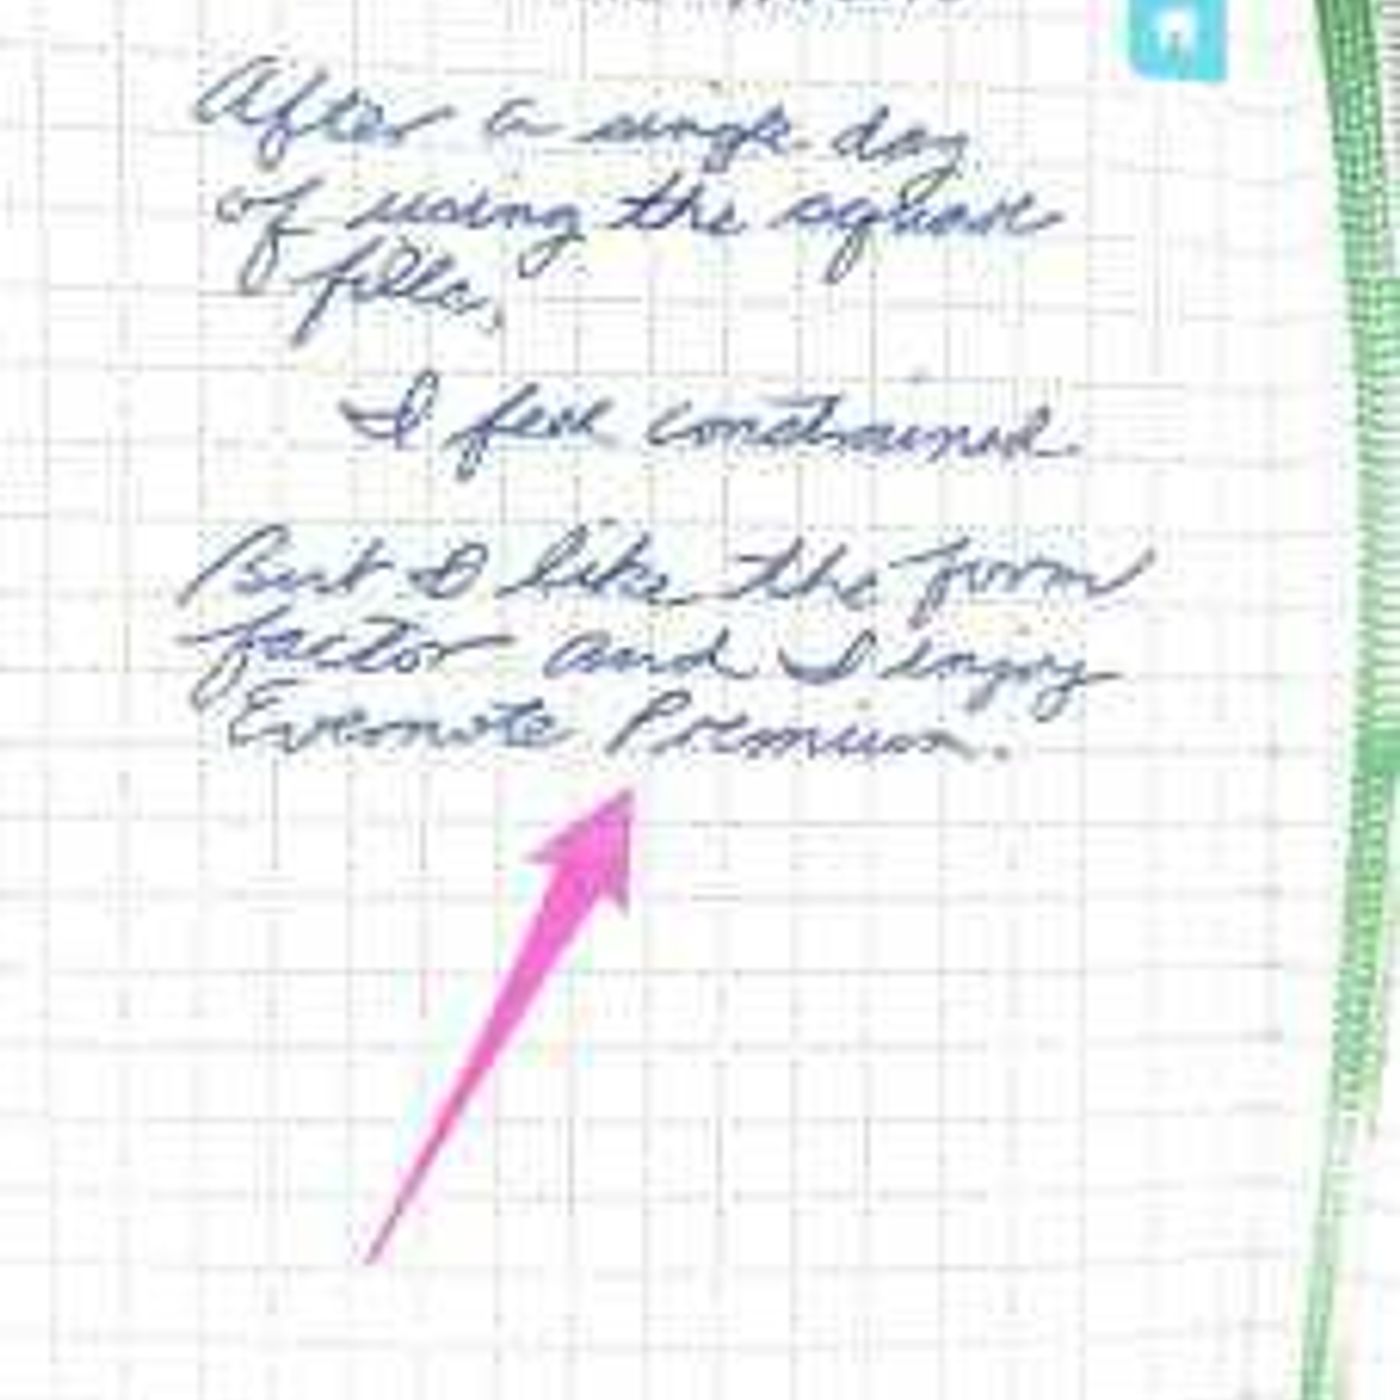 After a single day
of using the square
filler,
I feel constrained.
But I like the form
factor and I enjoy
Evernote Premium.